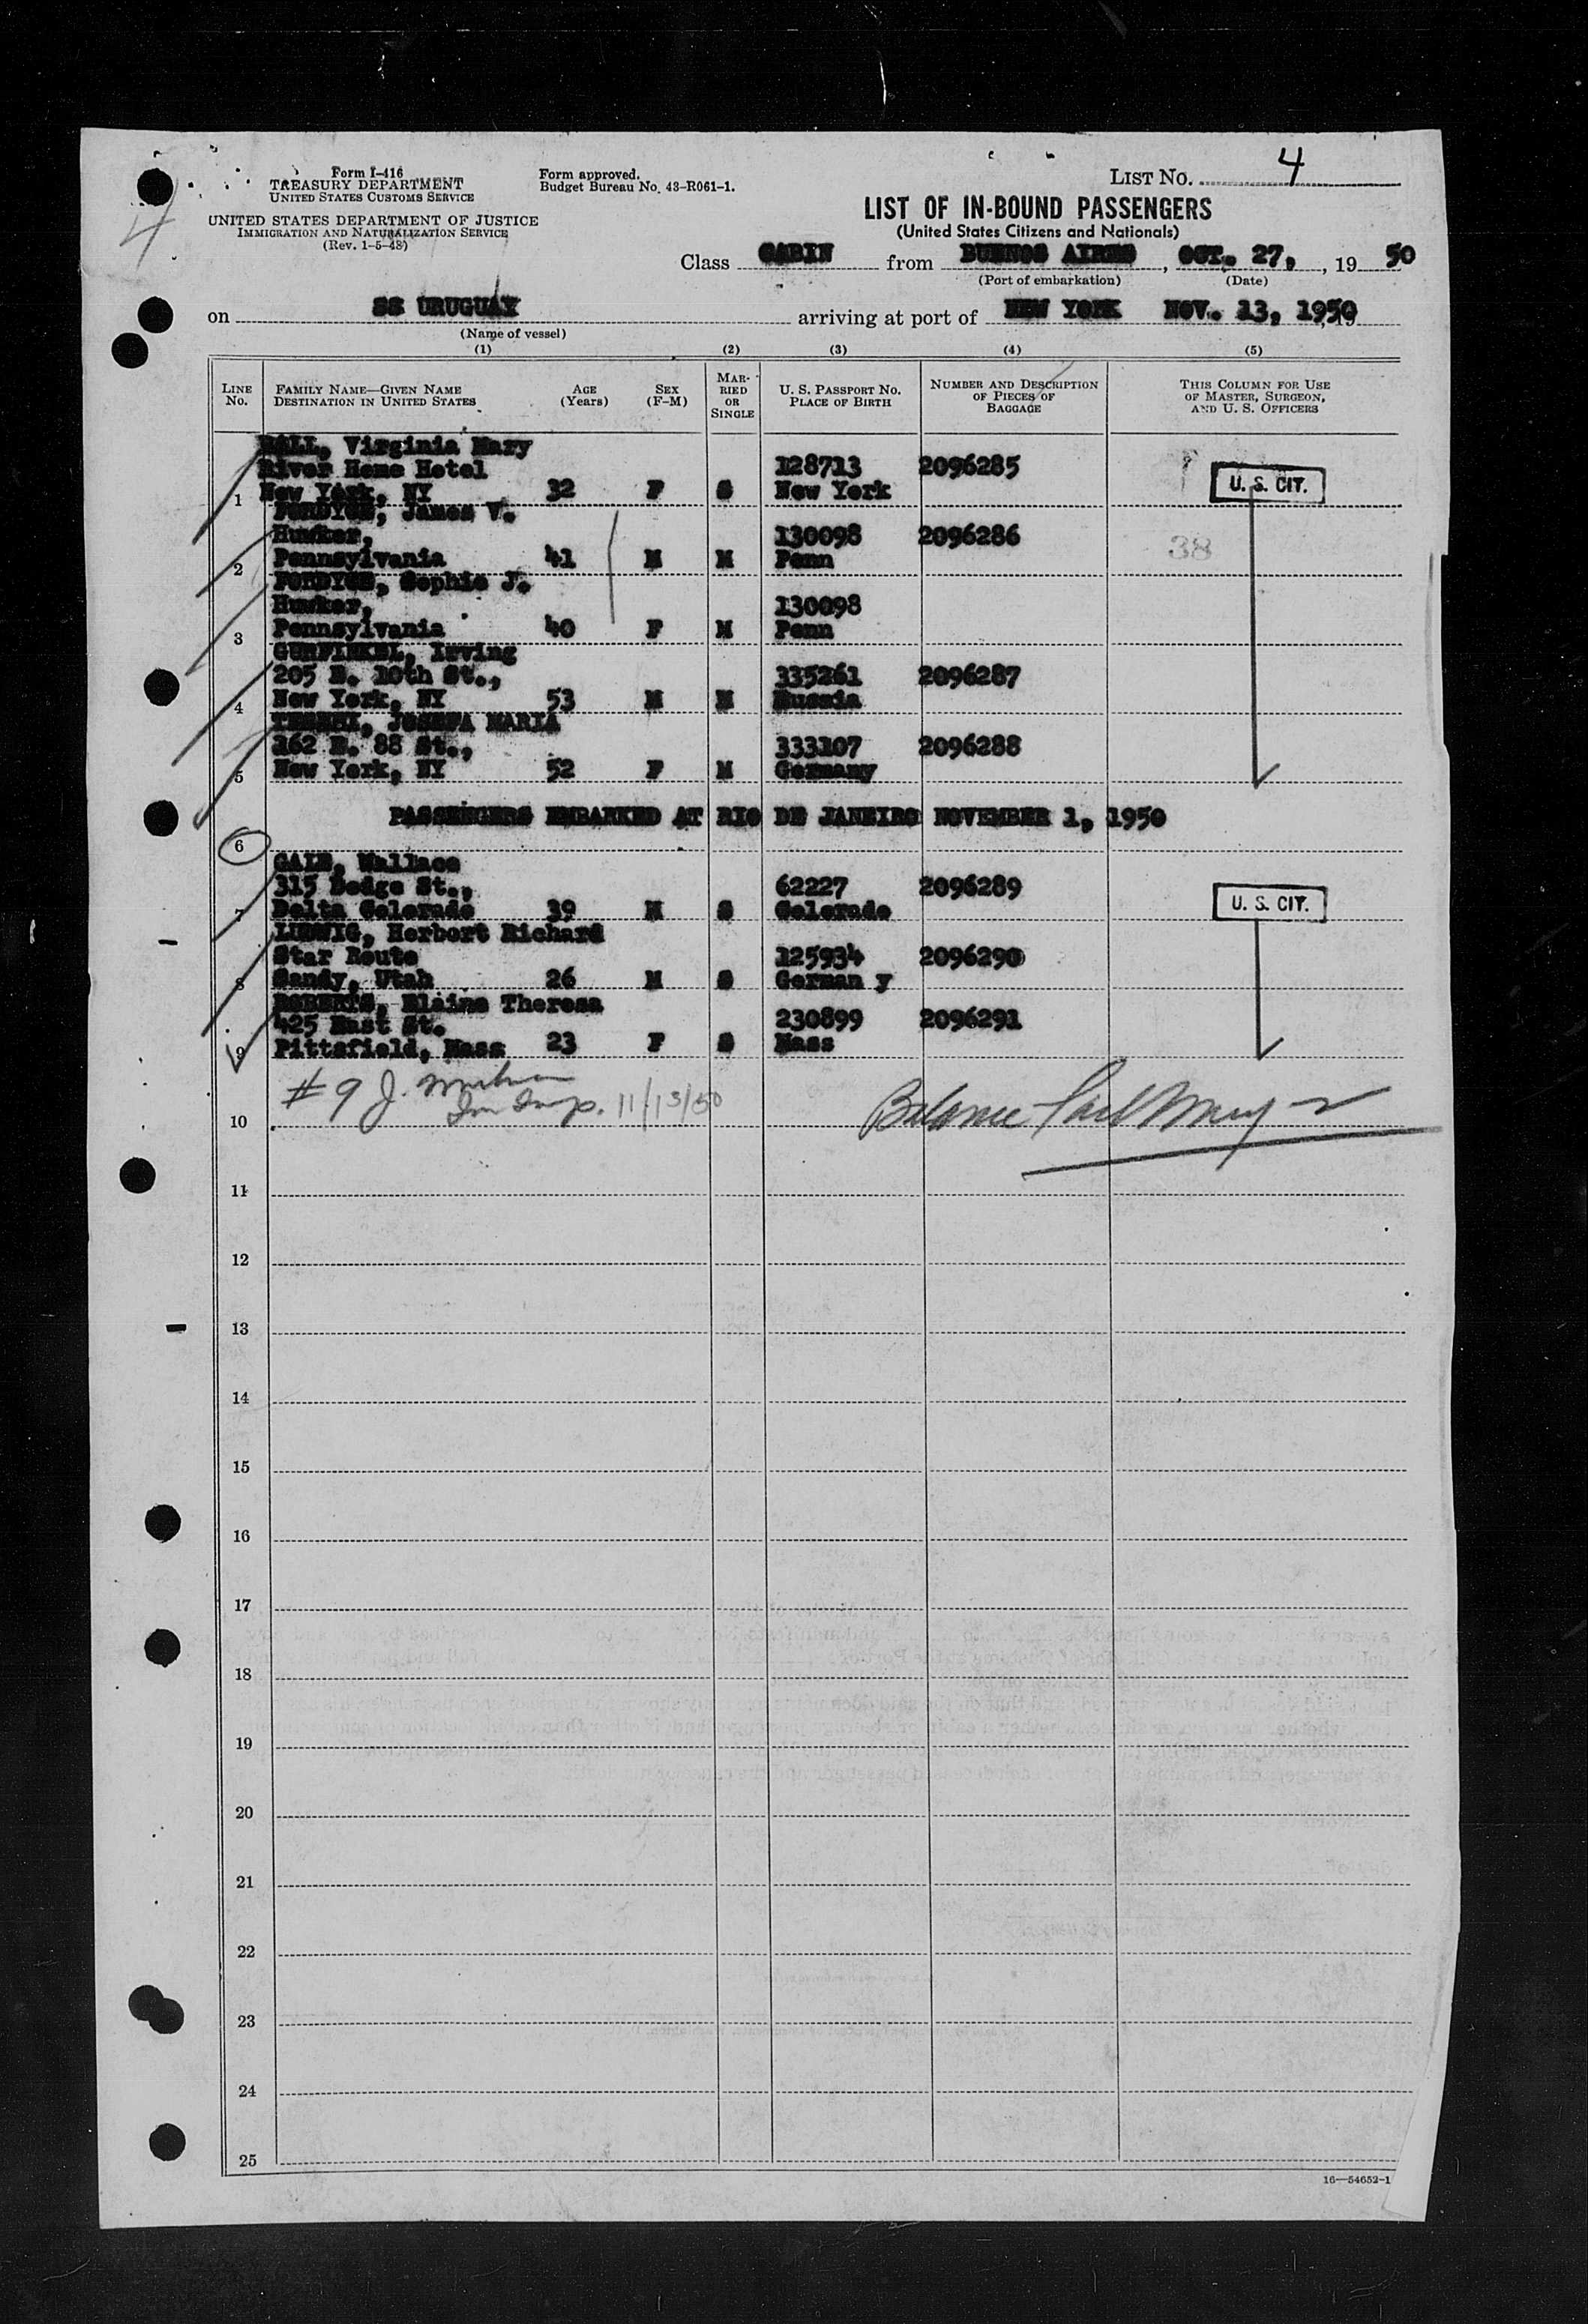 4
Form I-416
TREASURY DEPARTMENT
UNITED STATES CUSTOMS SERVICE
UNITED STATES DEPARTMENT OF JUSTICE
IMMIGRATION AND NATURALIZATION SERVICE
(Rev. 1-5-48)
Form approved.
Budget Bureau No. 43-R061-1.
LIST NO. 4
LIST OF IN-BOUND PASSENGERS
(United States Citizens and Nationals)
Class CABIN from BUENOS AIRES, OCT. 27, , 19 50
(Port of embarkation) (Date)
on SS URUGUAY arriving at port of NEW YORK NOV. 13, 1950
(Name of vessel)
(1) (2) (3) (4) (5)
LINE No. FAMILY NAME—GIVEN NAME DESTINATION IN UNITED STATES AGE (Years) SEX (F-M) MARRIED OR SINGLE U. S. PASSPORT NO. PLACE OF BIRTH NUMBER AND DESCRIPTION OF PIECES OF BAGGAGE THIS COLUMN FOR USE OF MASTER, SURGEON, AND U. S. OFFICERS
Virginia Mary
River Home Hotel 128713 2096285 U. S. CIT.
1 New York, NY 32 F S New York
FORDYCE, James V.
Hunker, 130098 2096286 38
2 Pennsylvania 41 M M Penn
FORDYCE, Sophie J.
Hunker, 130098
3 Pennsylvania 40 F M Penn
GURFINKEL, Irving
205 E. 10th St., 335261 2096287
4 New York, NY 53 M M Russia
JOSEFA MARIA
162 E. 88 St., 333107 2096288
5 New York, NY 52 F M Germany
PASSENGERS EMBARKED AT RIO DE JANEIRO NOVEMBER 1, 1950
6
GALE, Wallace
315 Dodge St., 62227 2096289 U. S. CIT.
7 Delta Colorado 39 M S Colorado
Herbert Richard
Star Route 125934 2096290
8 Sandy, Utah 26 M S German y
ROBERTS, Elaine Theresa
425 East St. 230899 2096291
9 Pittsfield, Mass 23 F S Mass
#9 J.
Im Insp. 11/13/50 Balance
10
11
12
13
14
15
16
17
18
19
20
21
22
23
24
25
16—54652-1